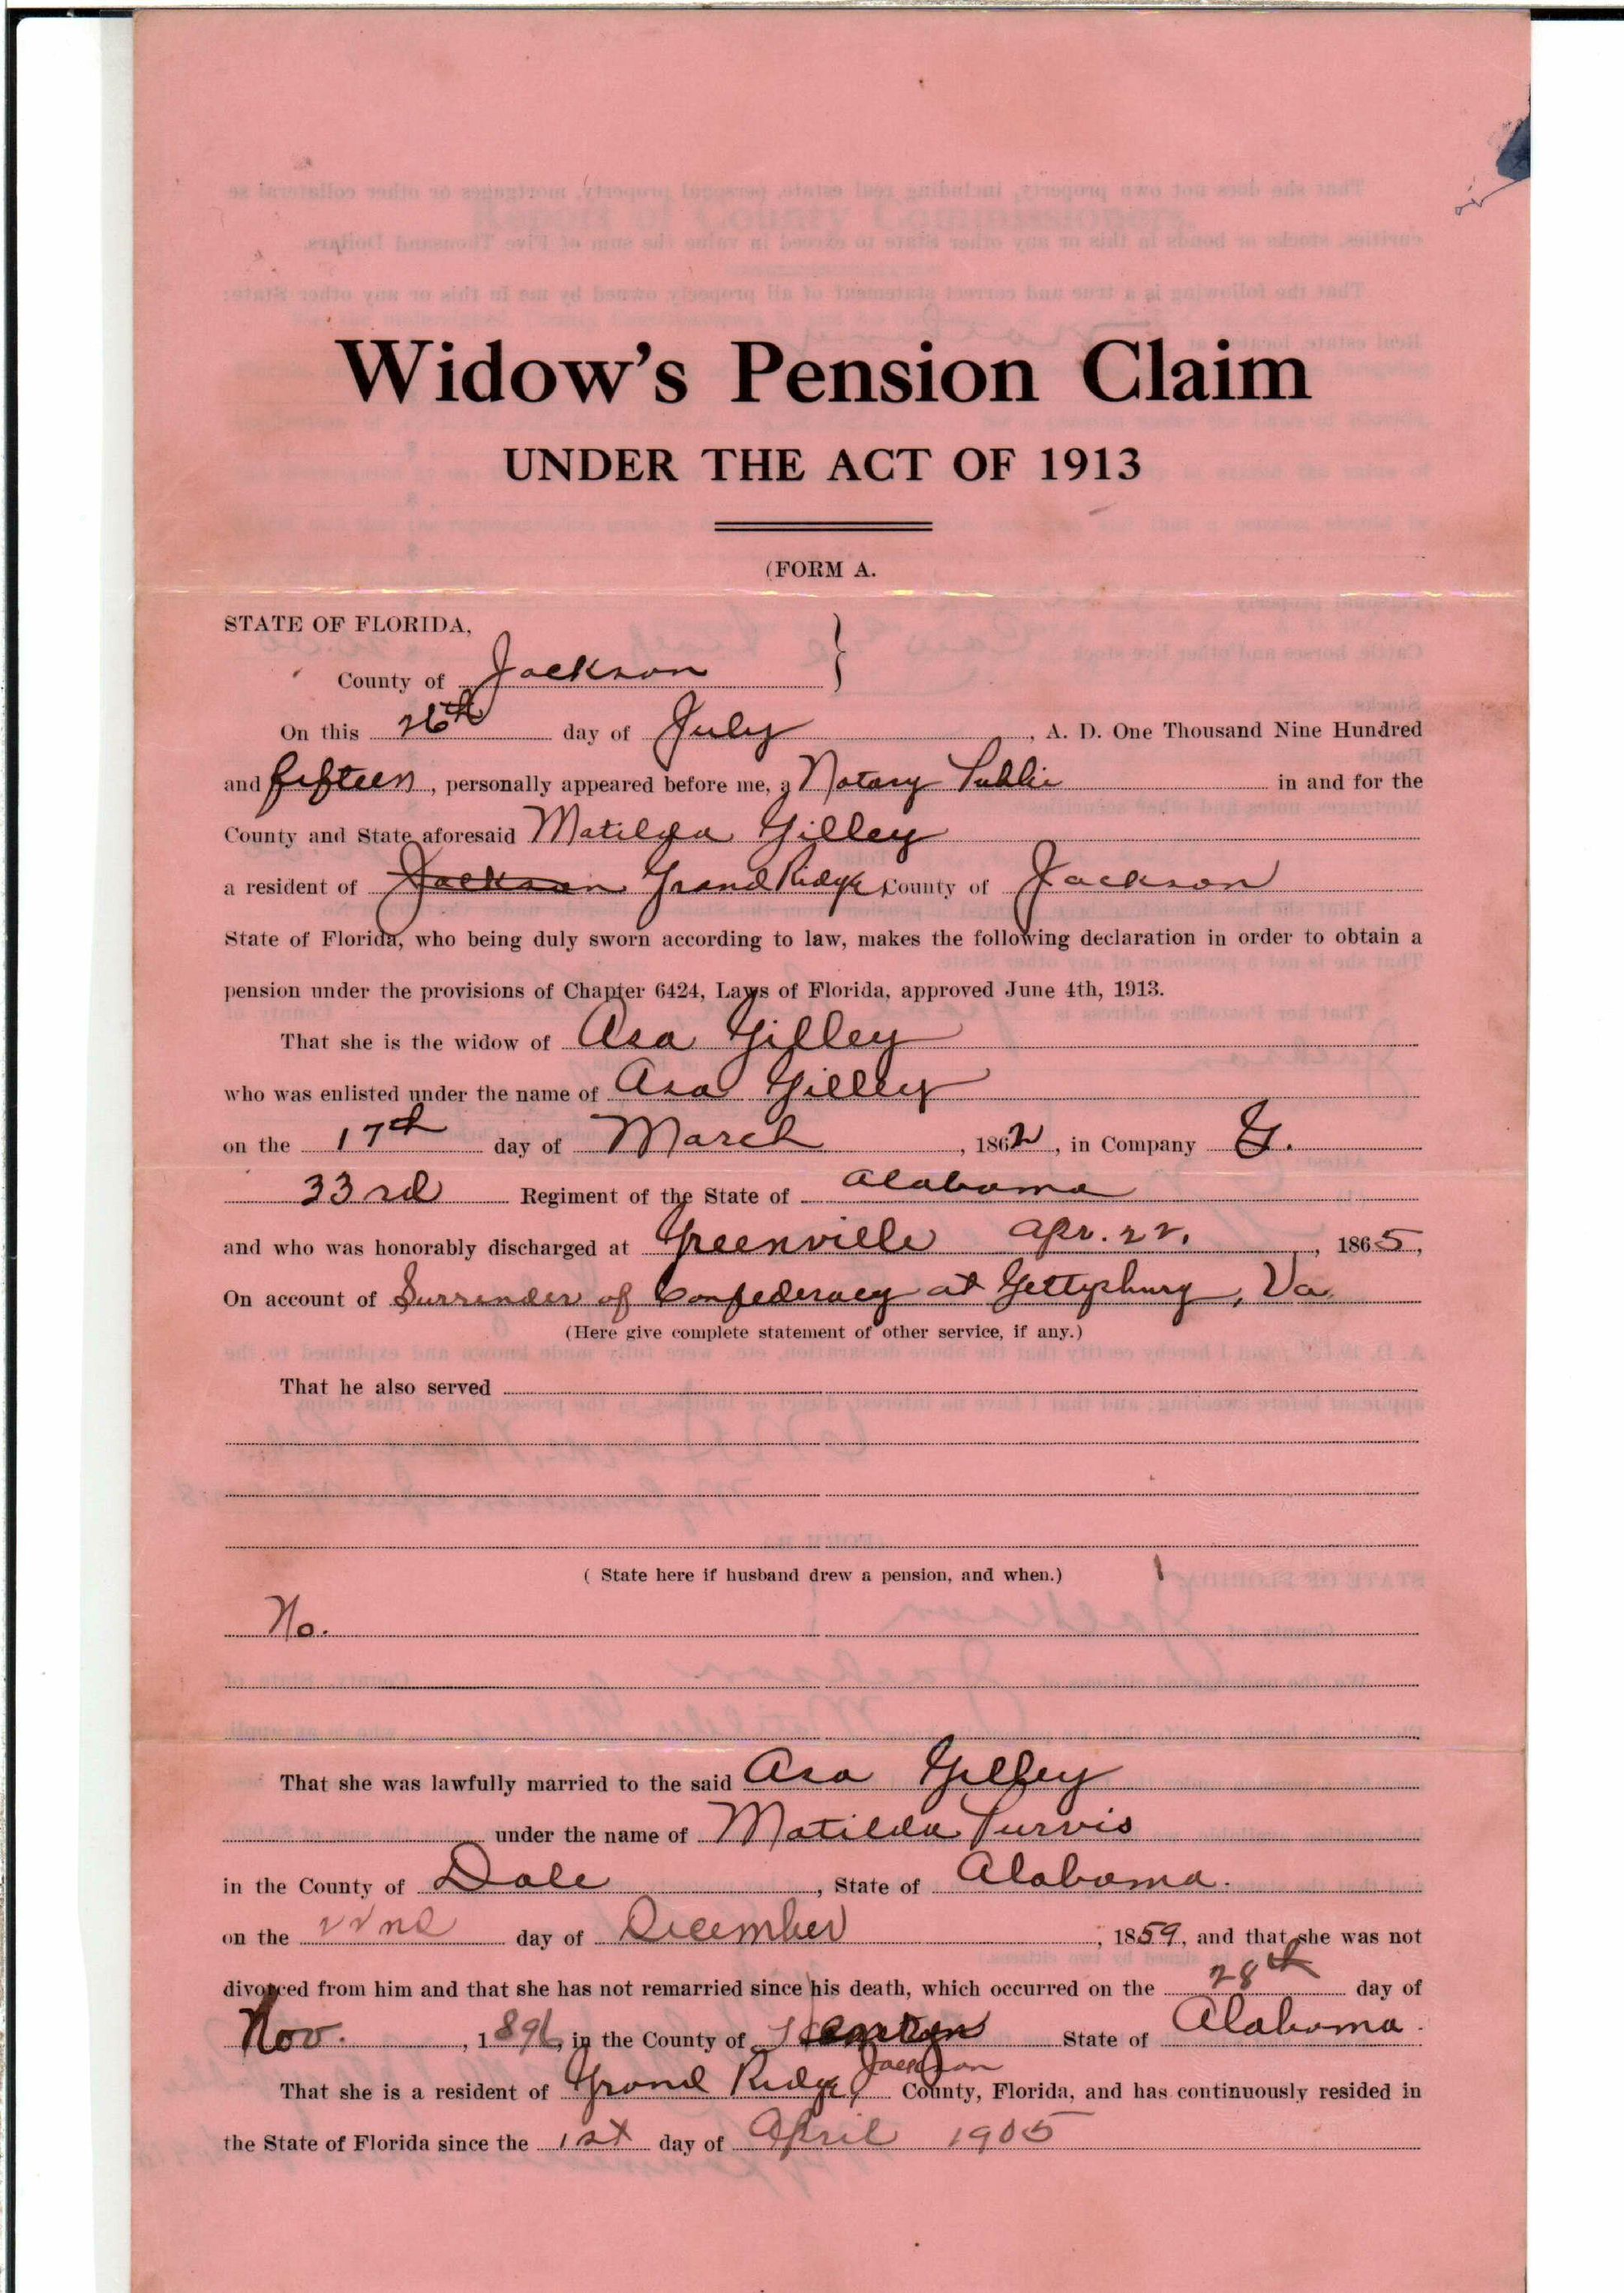 Widow's Pension Claim
UNDER THE ACT OF 1913
(FORM A.
STATE OF FLORIDA,
County of Jackson }
On this 26th day of July, A. D. One Thousand Nine Hundred
and fifteen, personally appeared before me, a Notary Public in and for the
County and State aforesaid Matilda Gilley
a resident of Jackson Grand Ridge County of Jackson
State of Florida, who being duly sworn according to law, makes the following declaration in order to obtain a
pension under the provisions of Chapter 6424, Laws of Florida, approved June 4th, 1913.
That she is the widow of Asa Gilley
who was enlisted under the name of Asa Gilley
on the 17th day of March, 1862, in Company G.
33rd Regiment of the State of Alabama
and who was honorably discharged at Greenville Apr. 22, 1865,
On account of Surrender of Confederacy at Gettysburg, Va
(Here give complete statement of other service, if any.)
That he also served
( State here if husband drew a pension, and when.)
No.
That she was lawfully married to the said Asa Gilley
under the name of Matilda Purvis
in the County of Dale, State of Alabama.
on the 22nd day of December, 1859, and that she was not
divorced from him and that she has not remarried since his death, which occurred on the 28th day of
Nov., 1896, in the County of State of Alabama.
That she is a resident of Grand Ridge, Jackson County, Florida, and has continuously resided in
the State of Florida since the 1st day of April 1905